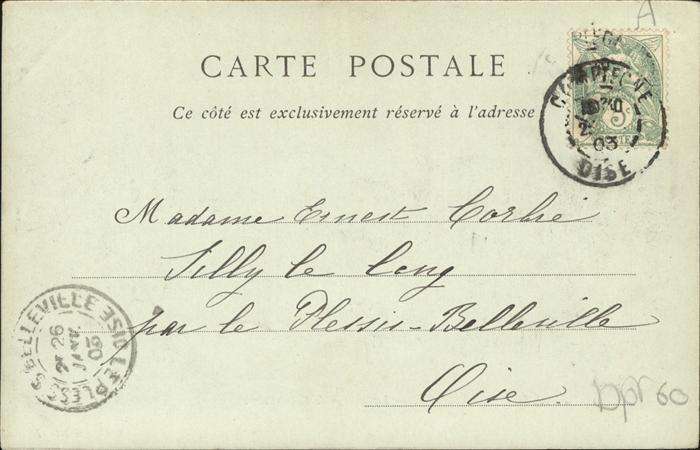 A
CARTE POSTALE
Ce côté est exclusivement réservé à l'adresse
COMPIEGNE
03
OISE
5
Madame Ernest Corbié
Silly le Long
par le Plessis-Belleville
Oise.
LE PLESSIS-BELLEVILLE OISE
26
JANV
03
Dpt 60